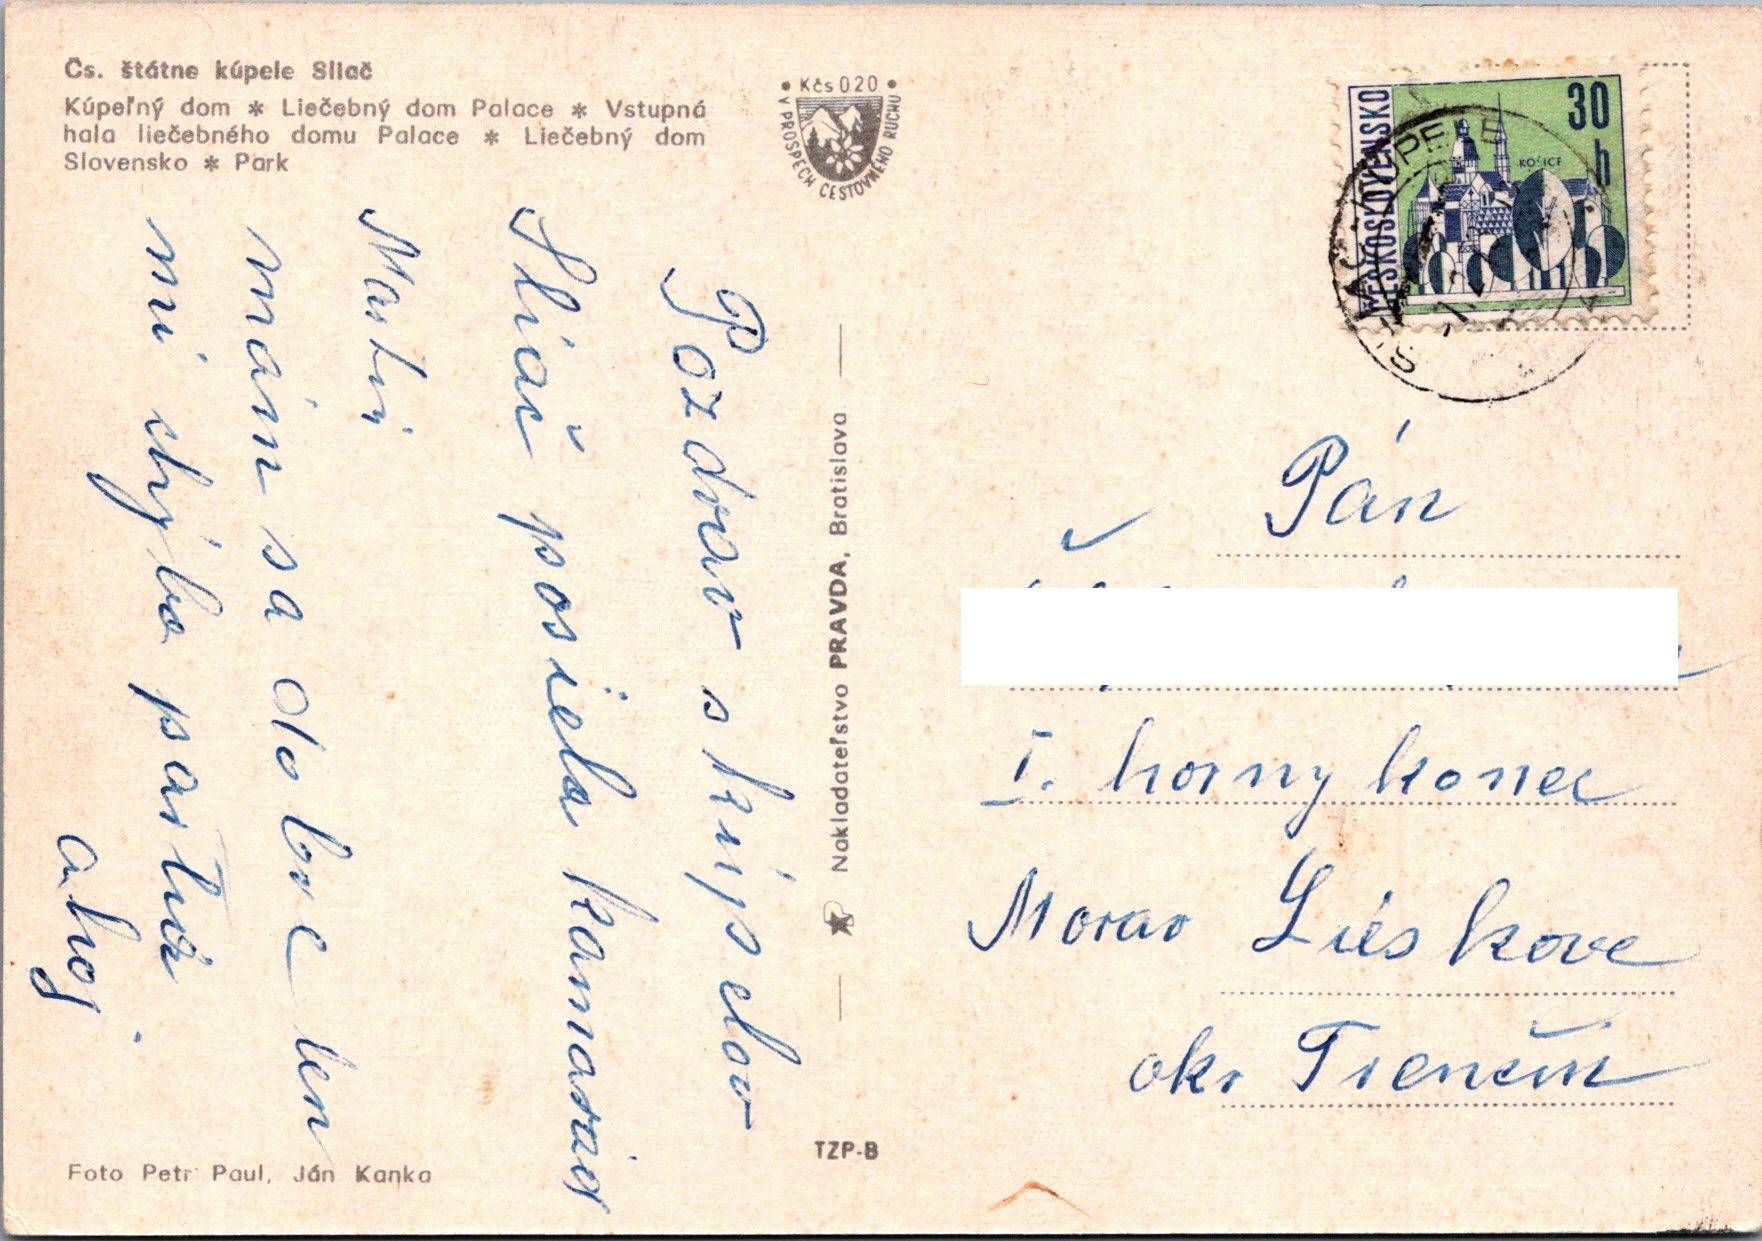 Čs. štátne kúpele Sliač
Kúpeľný dom * Liečebný dom Palace * Vstupná
hala liečebného domu Palace * Liečebný dom
Slovensko * Park
• Kčs 0.20 •
V PROSPECH CESTOVNÉHO RUCHU
ČESKOSLOVENSKO
30
h
KOŠICE
KÚPELE
Pozdrav s kúpelov
Sliač posiela kamarád
Martin
mám sa dobre len
mi chýba partia
ahoj.
Nakladateľstvo PRAVDA, Bratislava
Pán
I. horny konec
Morav Lieskove
okr Trenčín
TZP-B
Foto Petr Paul, Ján Kanka